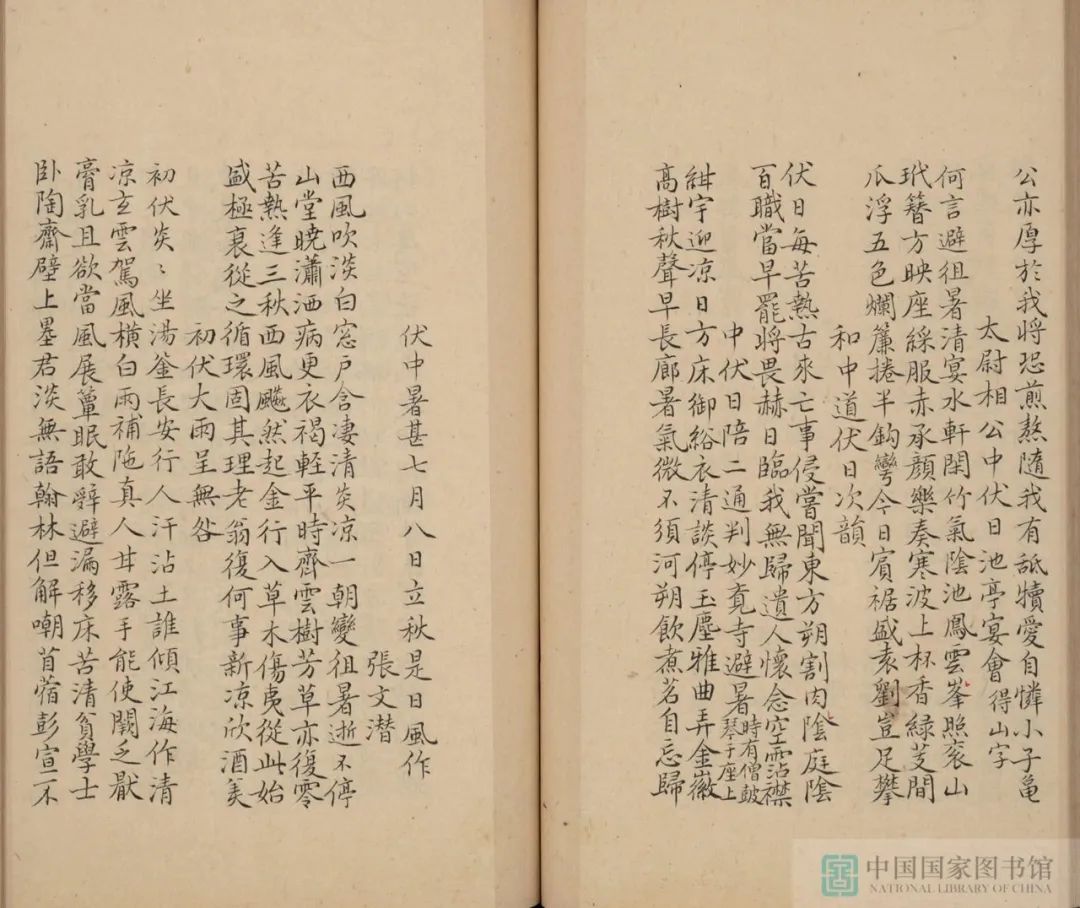 公亦厚於我將恐煎熬隨我有舐犢愛自憐小子黽
太尉相公中伏日池亭宴會得山字
何言避徂暑清宴水軒閑竹氣陰池鳳雲峯照袞山
玳簪方映座綵服赤承顏樂奏寒波上杯香綠芰間
瓜浮五色爛簾捲半鈎彎今日賓裾盛袁劉豈足攀
和中道伏日次韻
伏日每苦熱古來亡事侵嘗聞東方朔割肉陰庭陰
百職當早罷將畏赫日臨我無歸遺人懷念空霑襟
中伏日陪二通判妙覔寺避暑時有僧鼓琴于座上
紺宇迎凉日方床御綌衣清談停玉塵雅曲弄金徽
高樹秋聲早長廊暑氣微不須河朔飲煮茗自忘歸
伏中暑甚七月八日立秋是日風作
張文潛
西風吹淡白窓戶含凄清炎凉一朝變徂暑逝不停
山堂曉瀟洒病更衣褐軽平時齊雲樹芳草亦復零
苦熱逢三秋西風飈然起金行入草木傷夷從此始
盛極衰從之循環固其理老翁復何事新凉欣酒美
初伏大雨呈無咎
初伏炎〻坐湯釜長安行人汗沾土誰傾江海作清
凉玄雲駕風橫白雨補陁真人甘露手能使闕乏厭
膏乳且欲當風展簟眠敢辭避漏移床苦清貧學士
卧陶齋壁上墨君淡無語翰林但解嘲苜蓿彭宣不
中国国家图书馆
NATIONAL LIBRARY OF CHINA